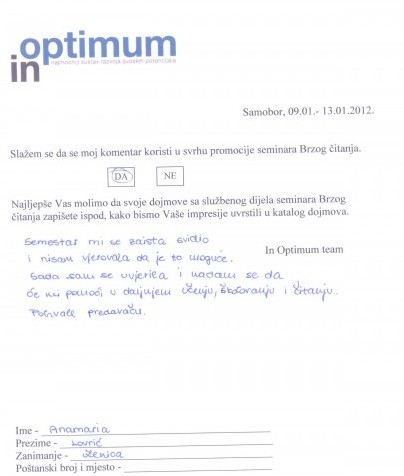 in optimum
najmoćniji sustav razvoja ljudskih potencijala
Samobor, 09.01.- 13.01.2012.
Slažem se da se moj komentar koristi u svrhu promocije seminara Brzog čitanja.
DA NE
Najljepše Vas molimo da svoje dojmove sa službenog dijela seminara Brzog
čitanja zapišete ispod, kako bismo Vaše impresije uvrstili u katalog dojmova.
In Optimum team
Semestar mi se zaista svidio
i nisam vjerovala da je to moguće.
Sada sam se uvjerila i nadam se da
će mi pomoći u daljnjem učenju, školovanju i čitanju.
Pohvale predavaču.
Ime - Anamaria
Prezime - Lovrić
Zanimanje - učenica
Poštanski broj i mjesto -